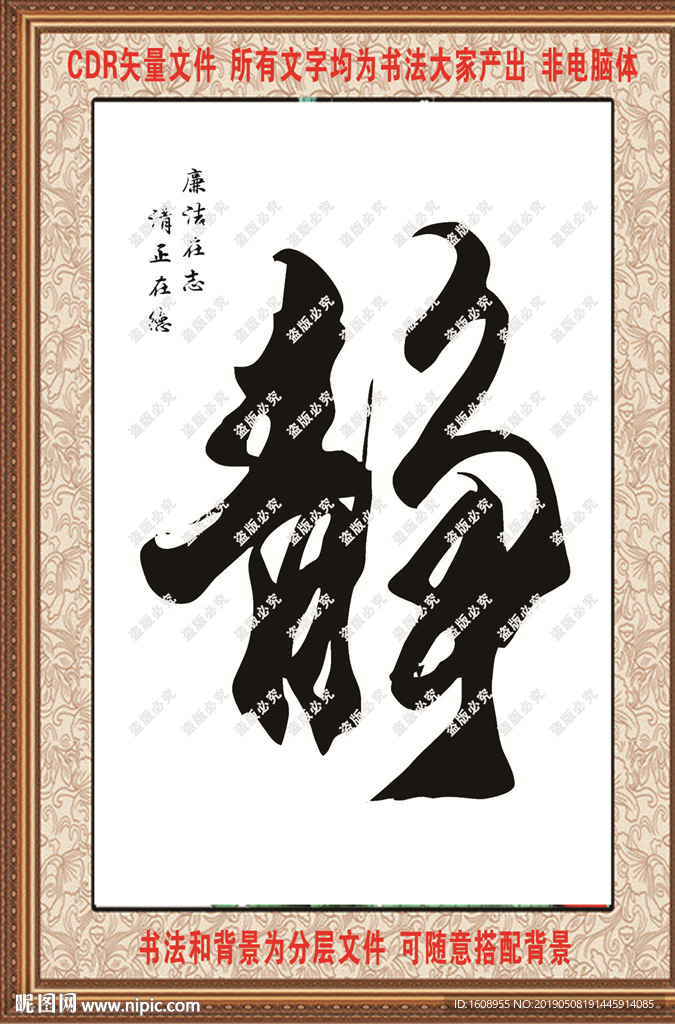 CDR矢量文件 所有文字均为书法大家产出 非电脑体
廉洁在志
清正在德
静
盗版必究
书法和背景为分层文件 可随意搭配背景
昵图网 www.nipic.com
ID:1608955 NO:20190508191445914085